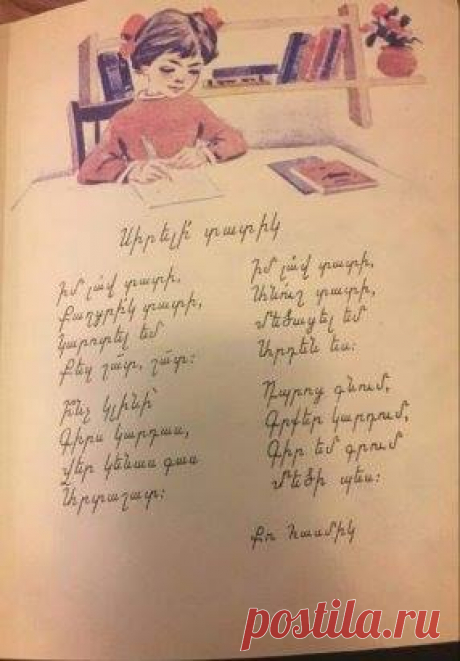 Սիրելի՛ տատիկ
Իմ լա՛վ տատի,
Քաղցրի՛կ տատի,
Կարոտել եմ
Քեզ շա՜տ, շա՜տ։
Ի՞նչ կլինի՝
Գիրս կարդաս,
Վեր կենաս գաս
Արտաշատ։
Իմ լա՛վ տատի,
Անո՛ւշ տատի,
Մեծացել եմ
Արդեն ես։
Դպրոց գնում,
Գրքեր կարդում,
Գիր եմ գրում
Մեծի պես։
Քո Հասմիկ
postila.ru